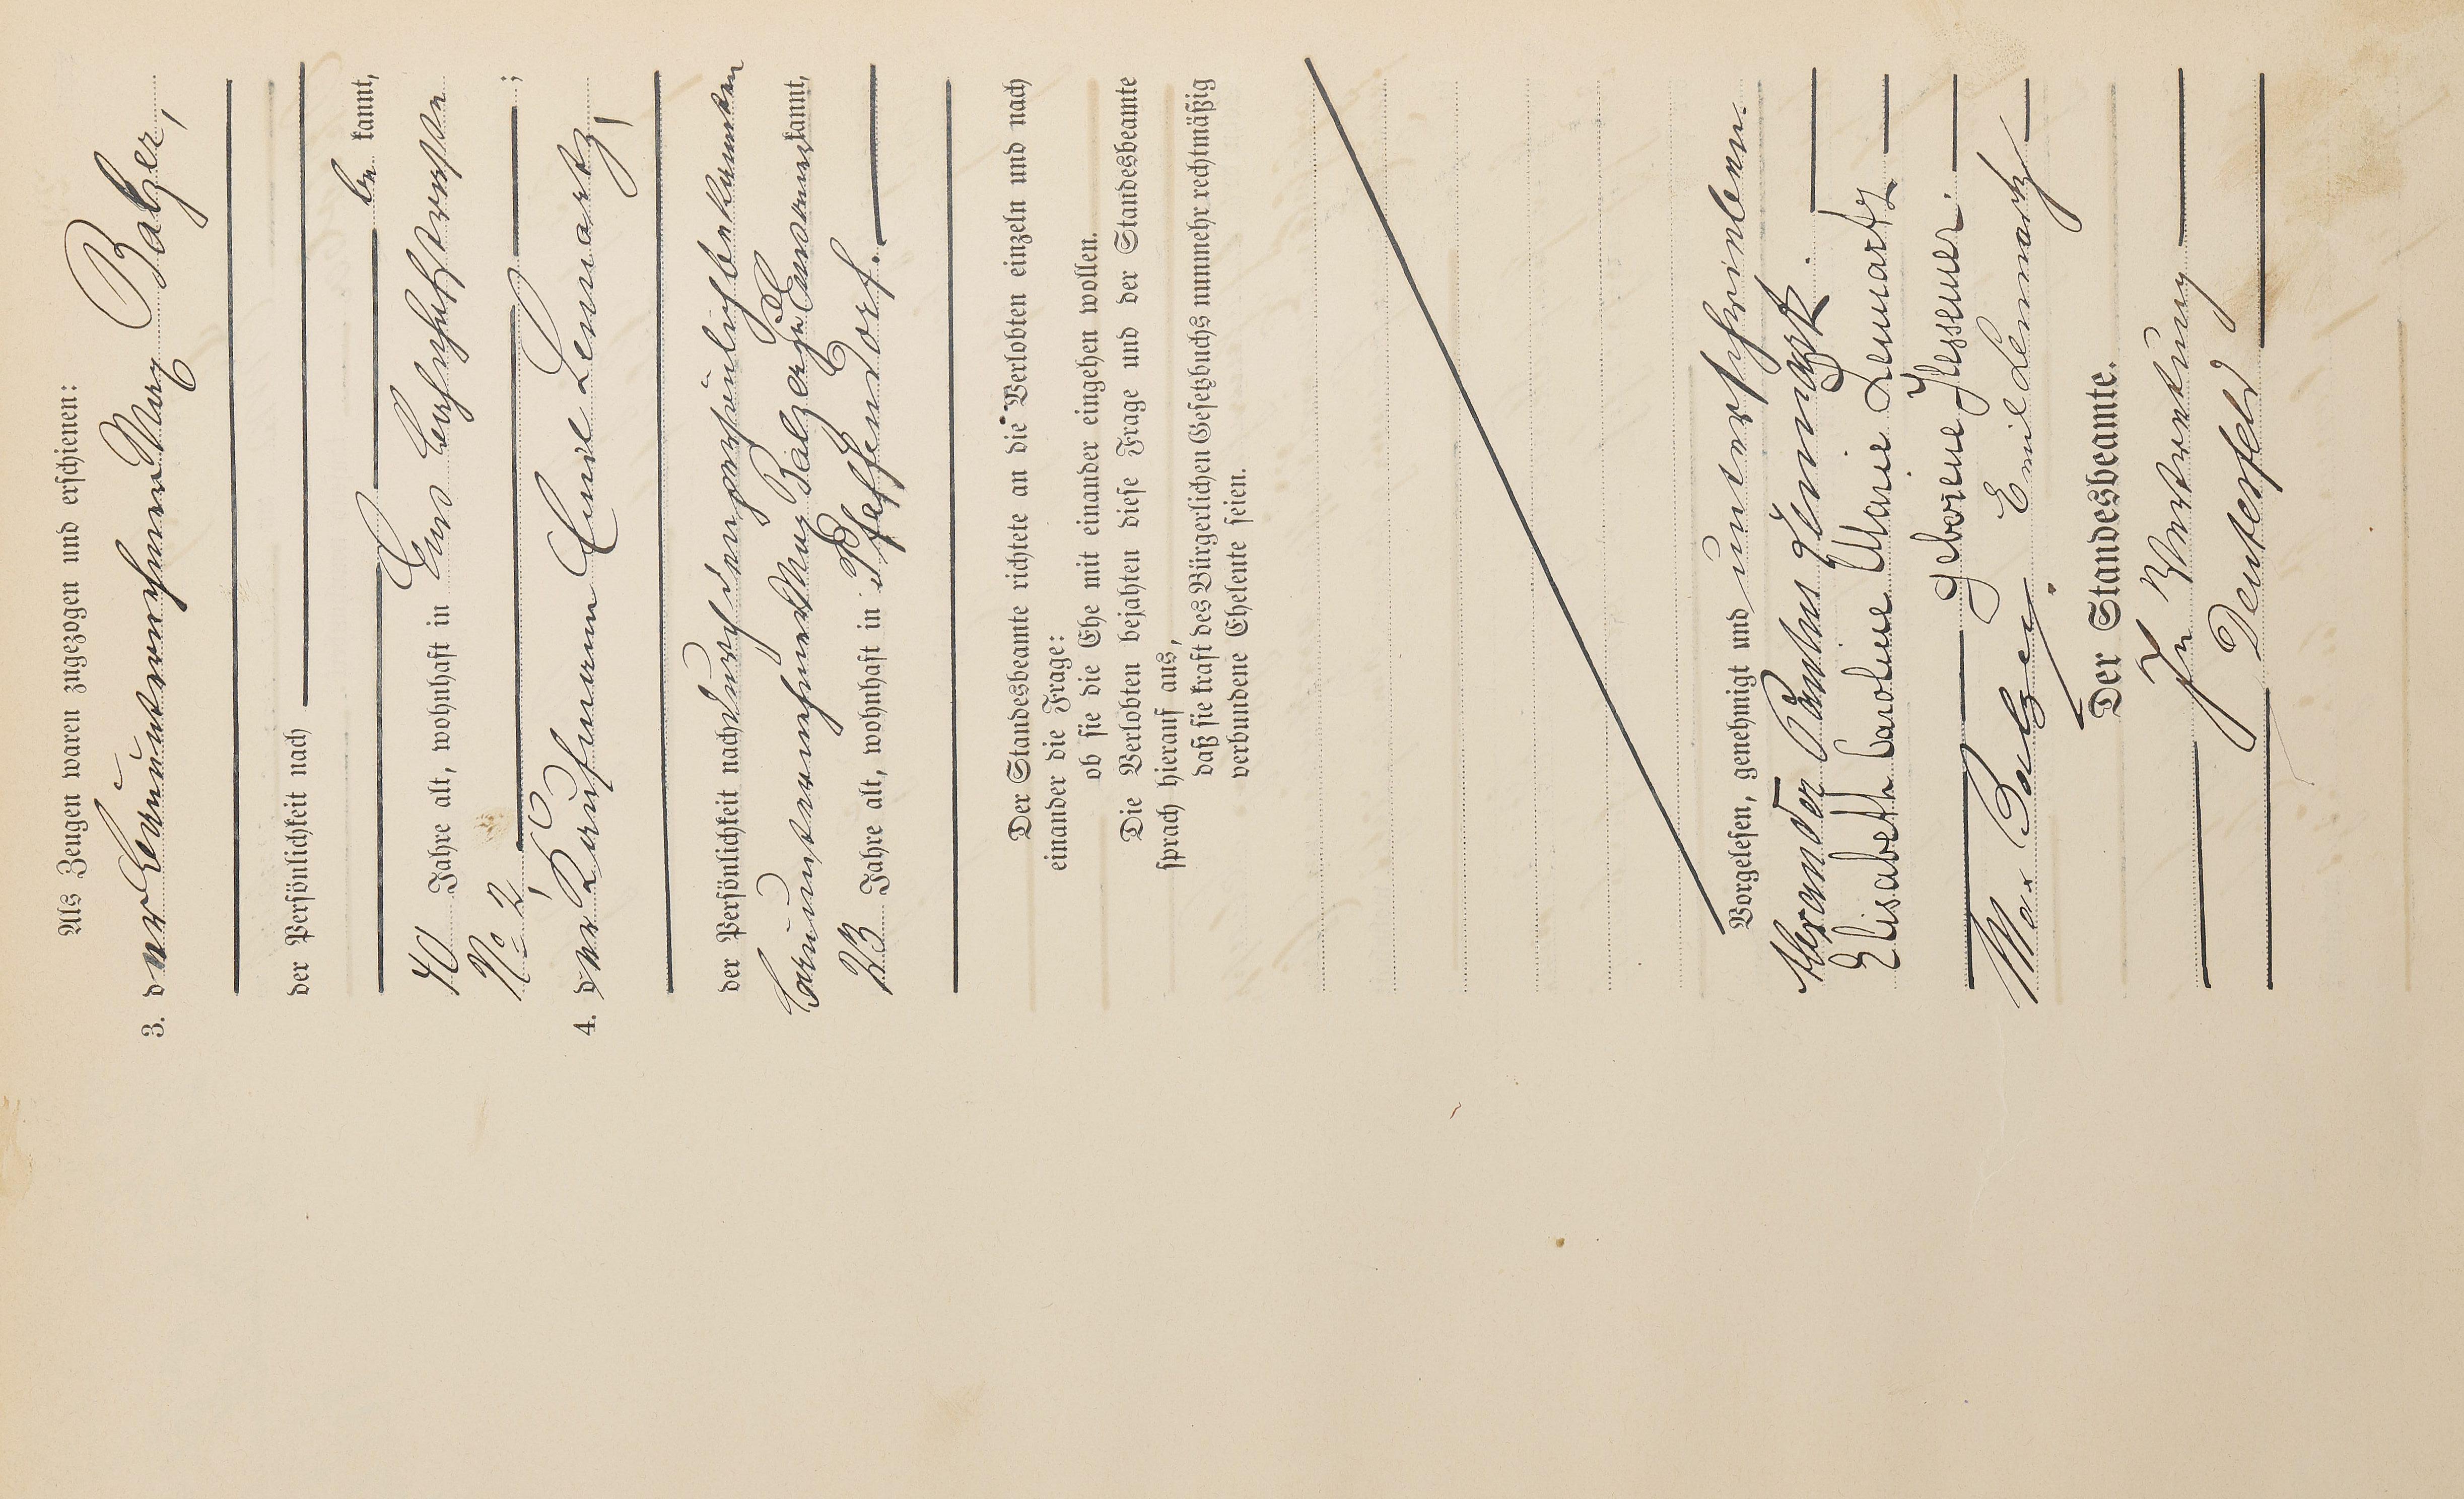 Als Zeugen waren zugezogen und erschienen:
3. der Bauunternehmer Max Balzer,
der Persönlichkeit nach
be kannt,
40 Jahre alt, wohnhaft in Ems Bahnhofstraße
No 2, ;
4. der Kaufmann Emil Lemartz,
der Persönlichkeit nach durch den persönlich bekannten
Bauunternehmer Max Balzer zu Ems anerkannt,
23 Jahre alt, wohnhaft in Pfaffendorf.
Der Standesbeamte richtete an die Verlobten einzeln und nach
einander die Frage:
ob sie die Ehe mit einander eingehen wollen.
Die Verlobten bejahten diese Frage und der Standesbeamte
sprach hierauf aus,
daß sie kraft des Bürgerlichen Gesetzbuchs nunmehr rechtmäßig
verbundene Eheleute seien.
Vorgelesen, genehmigt und unterschrieben.
Alexander Paulus
Elisabeth Caroline Marie Lemartz
geborene Flessner.
Max Balzer Emil Lemartz
Der Standesbeamte.
In Vertretung
Deuterfeld